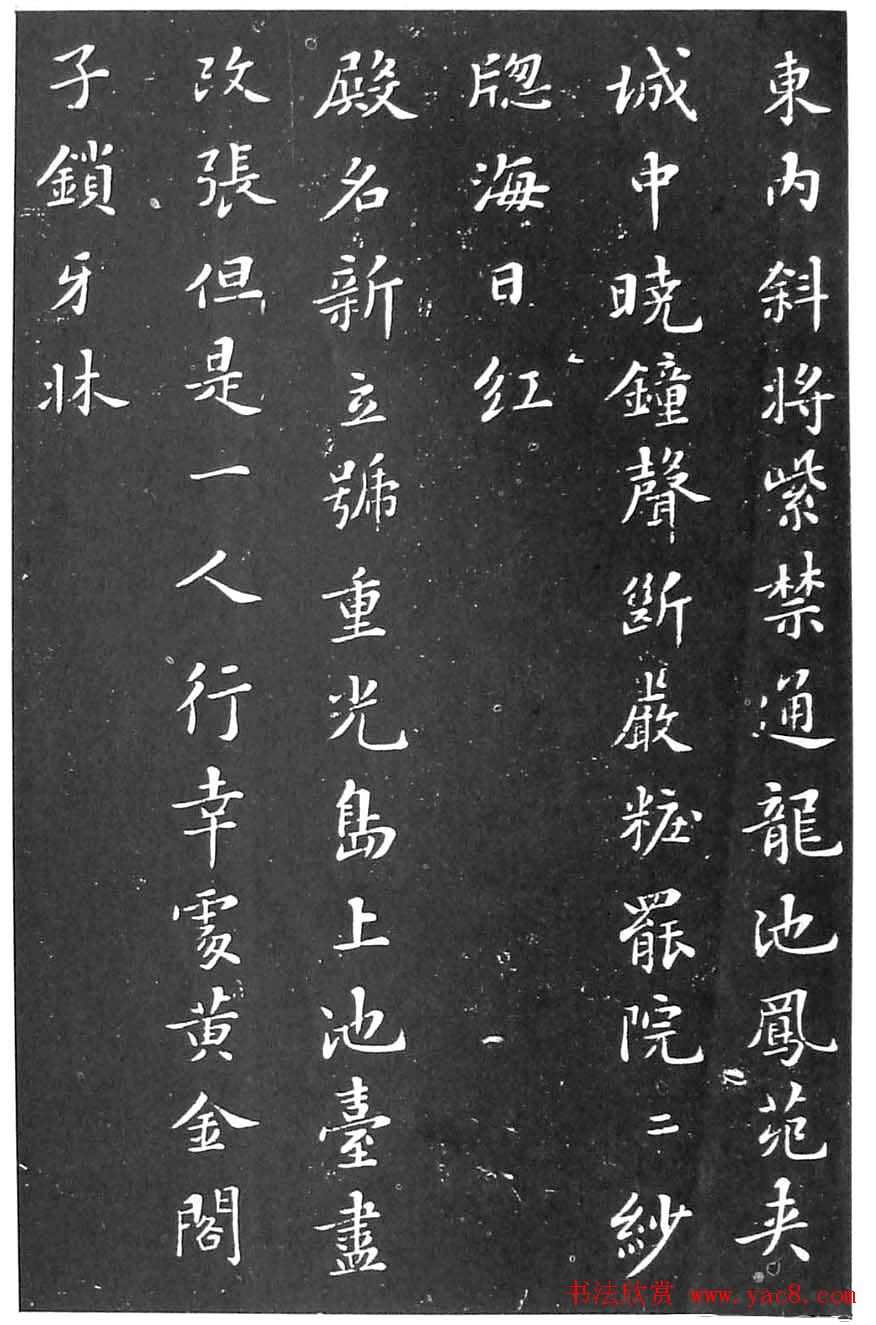 東内斜將紫禁通龍池鳳苑夹
城中曉鐘聲斷嚴粧罷院二紗
牕海日紅
殿名新立號重光島上池臺盡
改張但是一人行幸處黄金閣
子鎖牙牀
书法欣赏 www.yac8.com